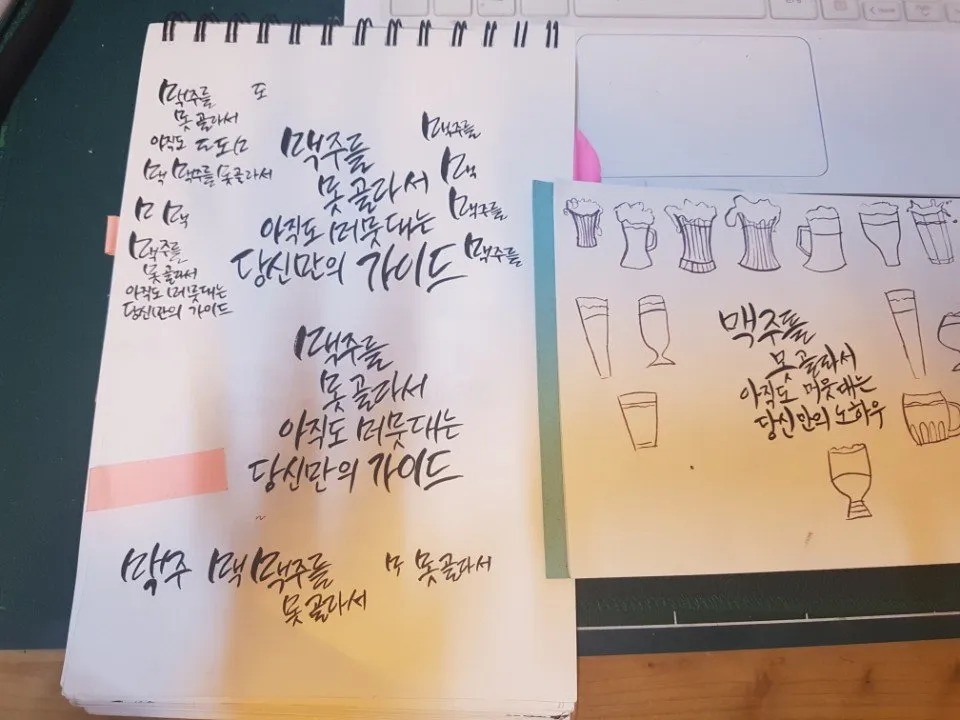 맥주를
또
못골라서
아직도 또또
맥 맥주를 못골라서
맥
맥주를
못골라서
아직도 머뭇대는
당신만의 가이드
맥주를
못골라서
아직도 머뭇대는
당신만의 가이드
맥주를
맥
맥주를
맥주를
맥주를
못골라서
아직도 머뭇대는
당신만의 가이드
맥주 맥 맥주를
못골라서
못골라서
맥주를
못골라서
아직도 머뭇대는
당신만의 노하우